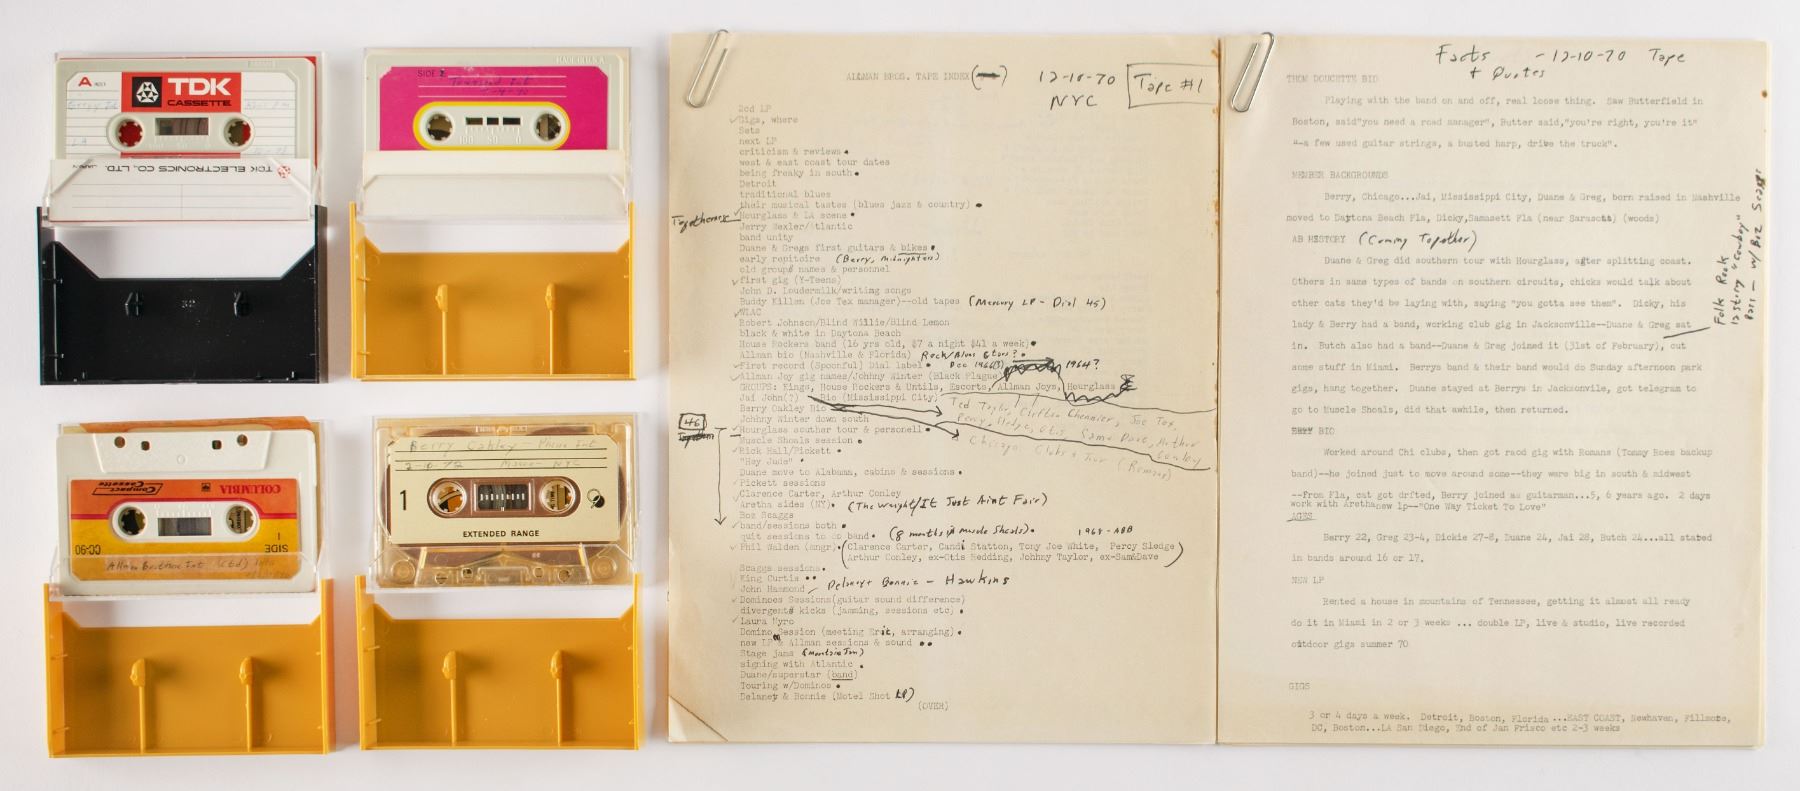 A
TDK
CASSETTE
TDK ELECTRONICS CO., LTD.
JAPAN
SIDE 2
COLUMBIA
Compact Cassette
SIDE 1
CC-90
Allman Brothers Int
Berry Oakley - Phone Int
NYC
1
EXTENDED RANGE
ALLMAN BROS. TAPE INDEX
12-10-70
NYC
Tape #1
2cd LP
Gigs, where
Sets
next LP
criticism & reviews
west & east coast tour dates
being freaky in south
Detroit
traditional blues
their musical tastes (blues jazz & country)
Togetherness
Hourglass & LA scene
Jerry Wexler/Atlantic
band unity
Duane & Gregs first guitars & bikes
early repitoire (Berry, Midnighters)
old group# names & personnel
first gig (Y-Teens)
John D. Loudermilk/writing songs
Buddy Killen (Joe Tex manager)--old tapes (Mercury LP - Dial 45)
WLAC
Robert Johnson/Blind Willie/Blind Lemon
black & white in Daytona Beach
House Rockers band (16 yrs old, $7 a night $41 a week)
Allman bio (Nashville & Florida) Rock/Blues Stars?
First record (Spoonful) Dial label 1964?
Allman Joy gig names/Johhny Winter (Black Plague)
GROUPS: Kings, House Rockers & Untils, Escorts/Allman Joys, Hourglass
Jai John(?) Bio (Mississippi City)
Ted Taylor, Clifton Chennier, Joe Tex,
Percy Sledge, Otis, Sam & Dave, Arthur Conley
Berry Oakley Bio
Chicago Clubs & Tour (Romans)
Johnny Winter down south
46
Hourglass souther tour & personell
Muscle Shoals session
Rick Hall/Pickett
"Hey Jude"
Duane move to Alabama, cabins & sessions
Pickett sessions
Clarence Carter, Arthur Conley
Aretha sides (NY) (The Weight/It Just Aint Fair)
Boz Scaggs
band/sessions both
quit sessions to do band (8 months @ Muscle Shoals) 1969-ABB
Phil Walden (mngr) (Clarence Carter, Candi Statton, Tony Joe White, Percy Sledge
Arthur Conley, ex-Otis Redding, Johnny Taylor, ex-Sam&Dave)
Scaggs sessions
King Curtis
John Hammond Delaney & Bonnie - Hawkins
Dominoes Sessions(guitar sound difference)
divergent# kicks (jamming, sessions etc)
Laura Nyro
Domino Session (meeting Eric, arranging)
new LP Allman sessions & sound
Stage jams (Mountain Jam)
signing with Atlantic
Duane/superstar (band)
Touring w/Dominos
Delaney & Bonnie (Motel Shot LP)
(OVER)
Facts - 12-10-70 Tape
+ Quotes
THOM DOUCETTE BIO
Playing with the band on and off, real loose thing. Saw Butterfield in
Boston, said"you need a road manager", Butter said,"you're right, you're it"
"-a few used guitar strings, a busted harp, drive the truck".
MEMBER BACKGROUNDS
Berry, Chicago...Jai, Mississippi City, Duane & Greg, born raised in Nashville
moved to Daytona Beach Fla, Dicky,Samasett Fla (near Sarasota) (woods)
AB HISTORY (Coming Together)
Duane & Greg did southern tour with Hourglass, after splitting coast.
Others in same types of bands on southern circuits, chicks would talk about
other cats they'd be laying with, saying "you gotta see them". Dicky, his
lady & Berry had a band, working club gig in Jacksonville--Duane & Greg sat
in. Butch also had a band--Duane & Greg joined it (31st of February), cut
some stuff in Miami. Berrys band & their band would do Sunday afternoon park
gigs, hang together. Duane stayed at Berrys in Jacksonvile, got telegram to
go to Muscle Shoals, did that awhile, then returned.
BIO
Worked around Chi clubs, then got raod gig with Romans (Tommy Roes backup
band)--he joined just to move around some--they were big in south & midwest
--From Fla, cat got drfted, Berry joined as guitarman...5, 6 years ago. 2 days
work with Arethanew lp--"One Way Ticket To Love"
AGES
Berry 22, Greg 23-4, Dickie 27-8, Duane 24, Jai 28, Butch 24...all stated
in bands around 16 or 17.
NEW LP
Rented a house in mountains of Tennessee, getting it almost all ready
do it in Miami in 2 or 3 weeks ... double LP, live & studio, live recorded
outdoor gigs summer 70
GIGS
3 or 4 days a week. Detroit, Boston, Florida ...EAST COAST, Newhaven, Fillmore,
DC, Boston...LA San Diego, End of Jan Frisco etc 2-3 weeks
Folk Rock
"Cowboy"